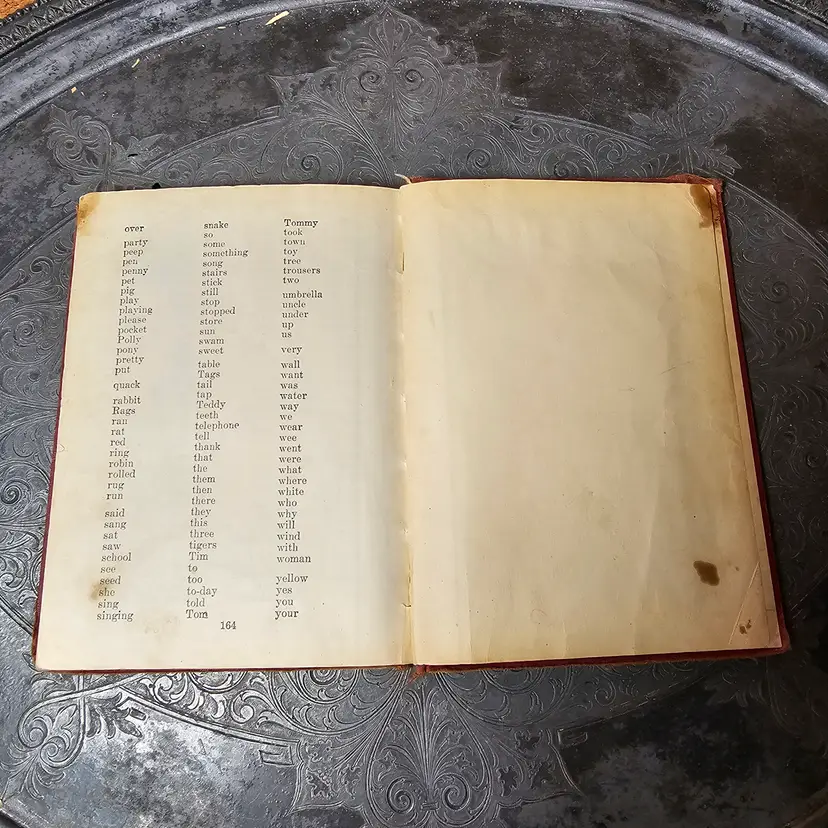 over
party
peep
pen
penny
pet
pig
play
playing
please
pocket
Polly
pony
pretty
put
quack
rabbit
Rags
ran
rat
red
ring
robin
rolled
rug
run
said
sang
sat
saw
school
see
seed
she
sing
singing
snake
so
some
something
song
stairs
stick
still
stop
stopped
store
sun
swam
sweet
table
Tags
tail
tap
Teddy
teeth
telephone
tell
thank
that
the
them
then
there
they
this
three
tigers
Tim
to
too
to-day
told
Tom
Tommy
took
town
toy
tree
trousers
two
umbrella
uncle
under
up
us
very
wall
want
was
water
way
we
wear
wee
went
were
what
where
white
who
why
will
wind
with
woman
yellow
yes
you
your
164